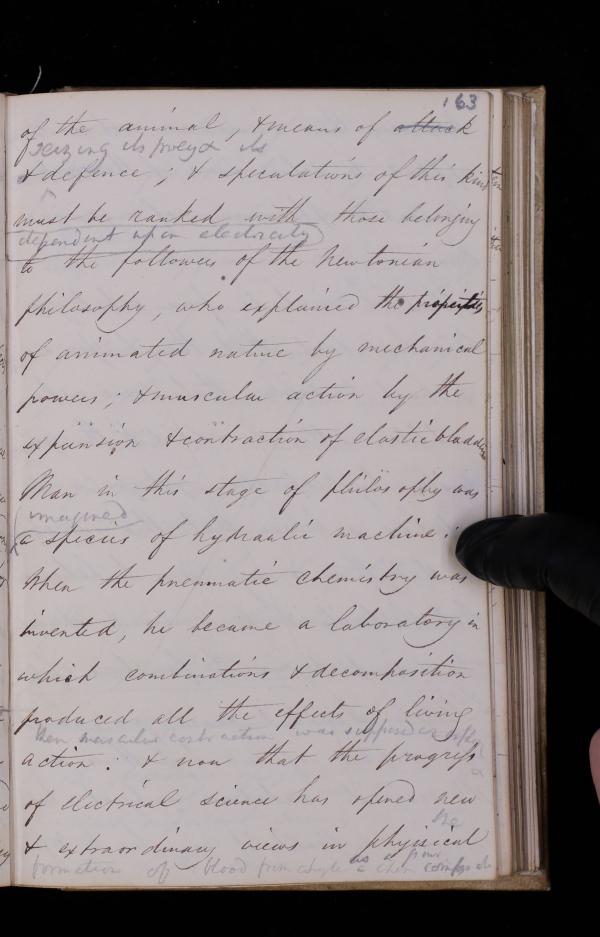 163
of the animal, & means of attack
seizing its prey & its
& defence; & speculations of this kind
must be ranked with those belonging
dependent upon electricity
to the followers of the Newtonian
philosophy, who explained the properties
of animated nature by mechanical
powers; & muscular action by the
expansion & contraction of elastic bladders
Man in this stage of philosophy was
imagined
a species of hydraulic machine:
When the pneumatic chemistry was
invented, he became a laboratory in
which combinations & decomposition
produced all the effects of living
then muscular contraction was supposed
action: & now that the progress
of electrical science has opened new
the
& extraordinary views in physical
formation of blood from chyle as a